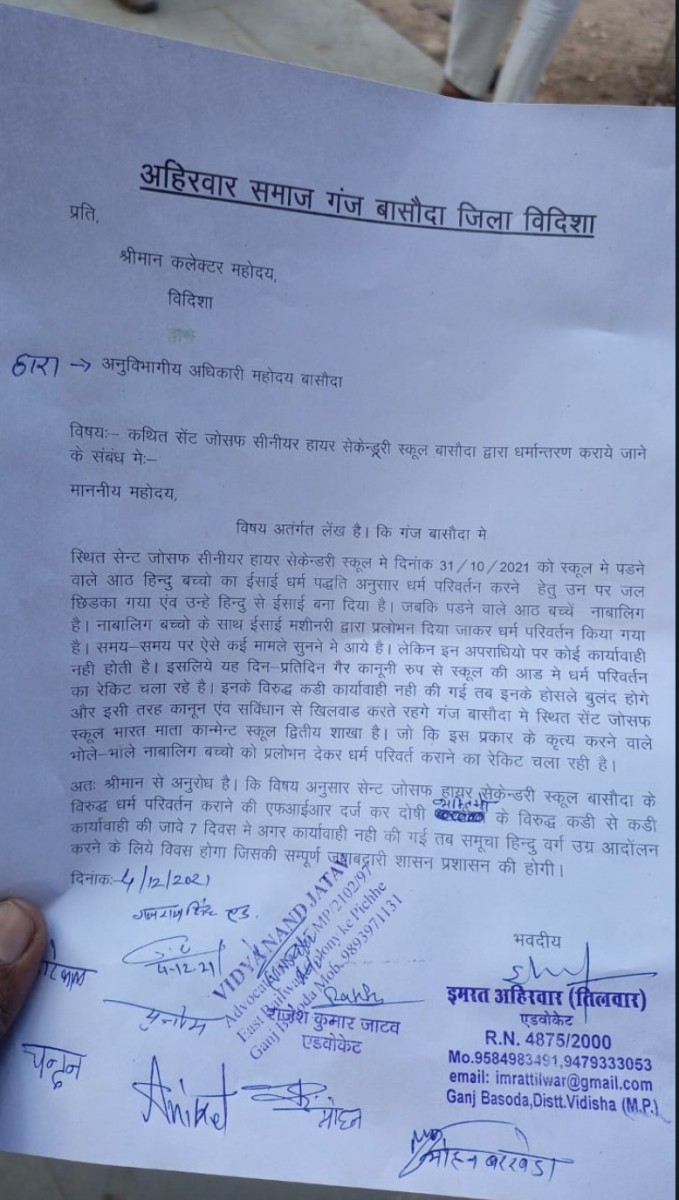 अहिरवार समाज गंज बासौदा जिला विदिशा
प्रति,
श्रीमान कलेक्टर महोदय,
विदिशा
द्वारा → अनुविभागीय अधिकारी महोदय बासौदा
विषय:– कथित सेंट जोसफ सीनीयर हायर सेकेण्डूरी स्कूल बासौदा द्वारा धर्मान्तरण कराये जाने
के संबंध मे:–
माननीय महोदय,
विषय अतंर्गत लेंख है। कि गंज बासौदा मे
स्थित सेन्ट जोसफ सीनीयर हायर सेकेण्डरी स्कूल मे दिनांक 31/10/2021 को स्कूल मे पडने
वाले आठ हिन्दु बच्चो का ईसाई धर्म पद्धति अनुसार धर्म परिवर्तन करने हेतु उन पर जल
छिडका गया एंव उन्हे हिन्दु से ईसाई बना दिया है। जबकि पडने वाले आठ बच्चें नाबालिग
है। नाबालिग बच्चो के साथ ईसाई मशीनरी द्वारा प्रलोभन दिया जाकर धर्म परिवर्तन किया गया
है। समय–समय पर ऐसे कई मामले सुनने मे आये है। लेकिन इन अपराधियो पर कोई कार्यावाही
नही होती है। इसलिये यह दिन–प्रतिदिन गैर कानूनी रुप से स्कूल की आड मे धर्म परिवर्तन
का रेकिट चला रहे है। इनके विरुद्ध कडी कार्यावाही नही की गई तब इनके होसले बुलंद होगे
और इसी तरह कानून एंव सविंधान से खिलवाड करते रहगे गंज बासौदा मे स्थित सेंट जोसफ
स्कूल भारत माता कान्मेन्ट स्कूल द्वितीय शाखा है। जो कि इस प्रकार के कृत्य करने वाले
भोले–भाले नाबालिग बच्चो को प्रलोभन देकर धर्म परिवर्त कराने का रेकिट चला रही है।
अतः श्रीमान से अनुरोध है। कि विषय अनुसार सेन्ट जोसफ हायर सेकेन्डरी स्कूल बासौदा के
विरुद्ध धर्म परिवर्तन कराने की एफआईआर दर्ज कर दोषी के विरुद्ध कडी से कडी
कार्यावाही की जावे 7 दिवस मे अगर कार्यावाही नही की गई तब समूचा हिन्दु वर्ग उग्र आदोंलन
करने के लिये विवस होगा जिसकी सम्पूर्ण जबाबद्वारी शासन प्रशासन की होगी।
दिनांक:- 4/12/2021
4-12-21
VIDYANAND JATAV
Advocate MP/2102/97
East Railway Colony ke Pichhe
Ganj Basoda Mob. 9893971131
राजेश कुमार जाटव
एडवोकेट
चन्दन
Aniket
मोहन
भवदीय
इमरत अहिरवार (तिलवार)
एडवोकेट
R.N. 4875/2000
Mo.9584983491,9479333053
email: imrattilwar@gmail.com
Ganj Basoda,Distt.Vidisha (M.P.)